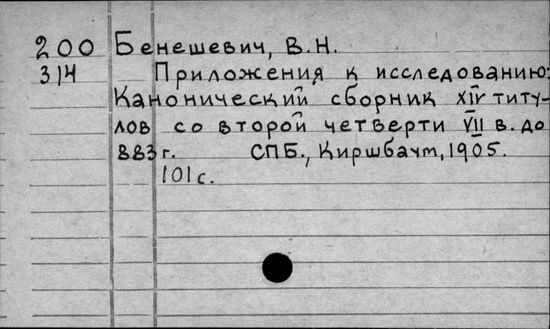 200 Бенешевич, В.Н.
314 Приложения к исследованию:
Канонический сборник XIV титу-
лов со второй четверти VII в. до
883 г. СПБ., Киршбаум, 1905.
101 с.